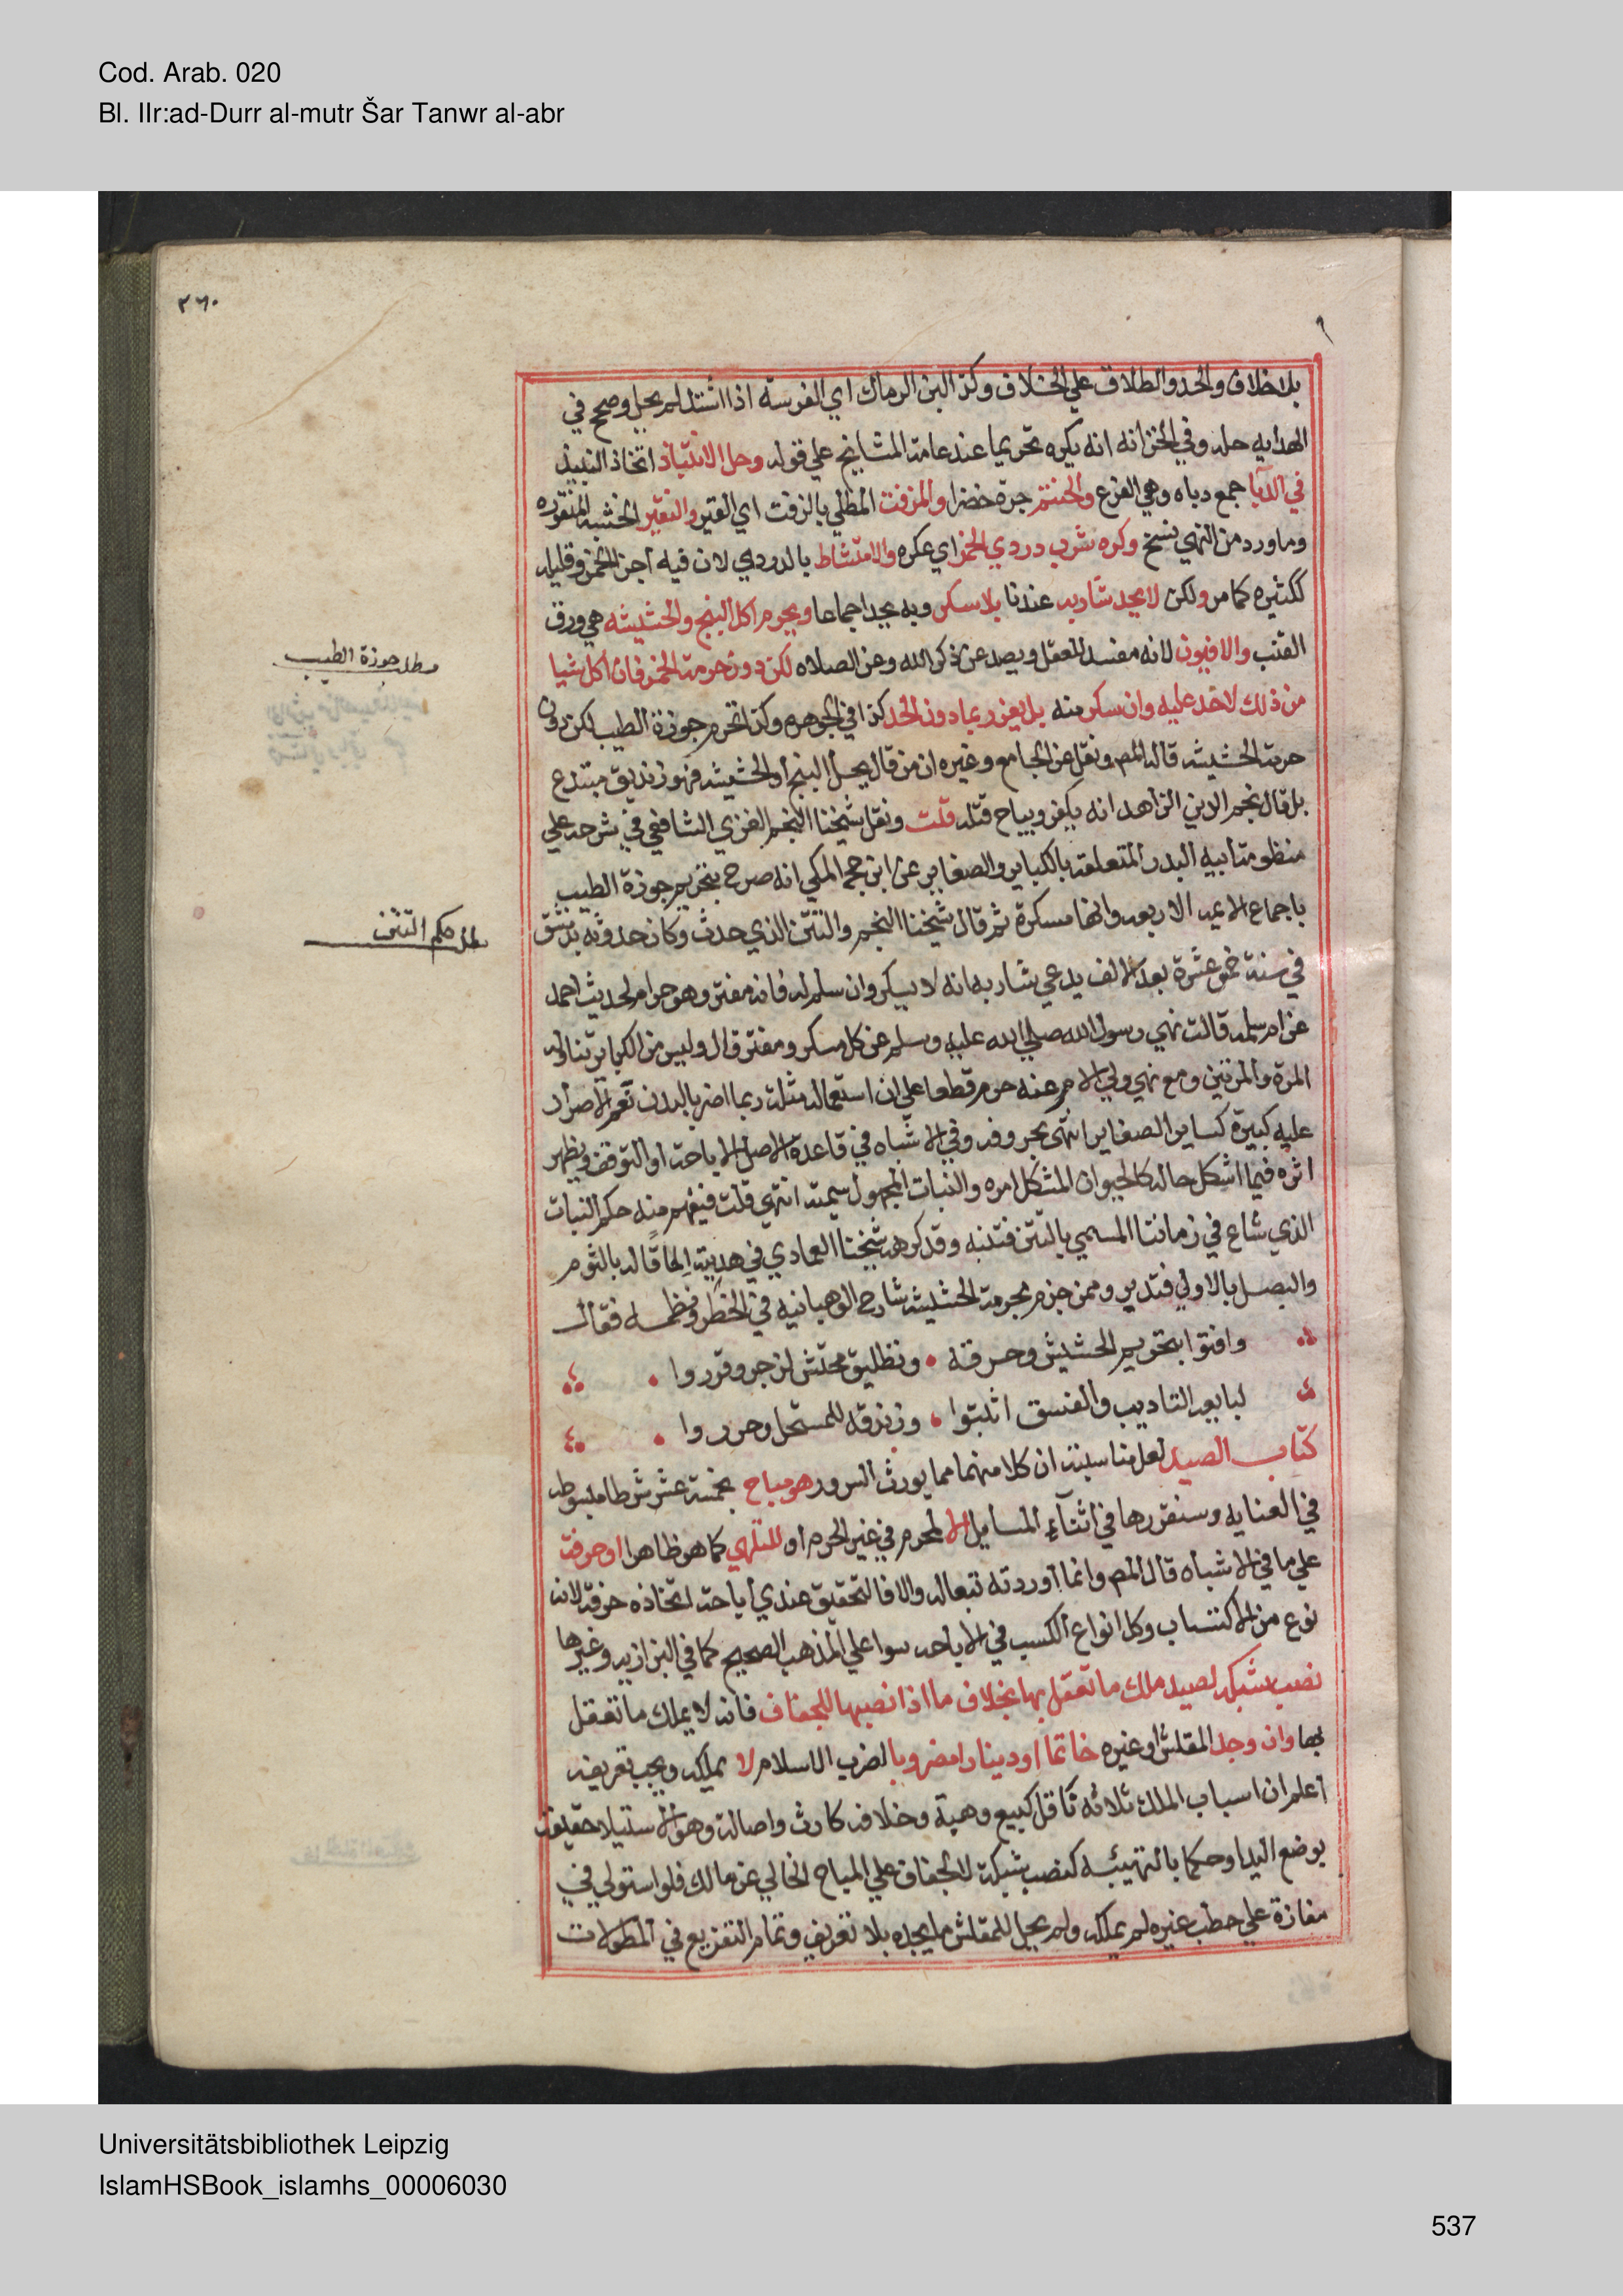 Cod. Arab. 020
Bl. IIr:ad-Durr al-mutr Šar Tanwr al-abr
٢٦٠
بلا خلاف والحد والطلاق علي الخلاف وكذا لبن الرماك اي الفرسه اذا اشتد لم يحل وصحح في
الهدايه حله وفي الخزانه انه يكره تحريما عند عامة المشايخ علي قوله وحل الانتباذ اتخاذ النبيذ
في الدبا جمع دباه وهي القرع والحنتم جرة خضرا والمزفت المطلي بالزفت اي القير والنقير الخشبه المنقوره
وما ورد من النهي نسخ وكره شرب دردي الخمر اي عكره والامتشاط بالدردي لان فيه اجزا الخمر وقليله
ككثيره كما مر ولكن لا يحد شاربه عندنا بلا سكر وبه يحد اجماعا ويحرم اكل البنج والحشيشه هي ورق
القنب والافيون لانه مفسد للعقل ويصد عن ذكر الله وعن الصلاه لكن دون حرمة الخمر فان اكل شيا
من ذلك لا حد عليه وان سكر منه بل يعزر بما دون الحد كذا في الجوهره وكذا تحرم جوزة الطيب لكن دون
حرمة الحشيشه قاله المص ونقل عن الجامع وغيره ان من قال يحل البنج او الحشيشه فهو زنديق مبتدع
بل قال نجم الدين الزاهد انه يكفر ويباح قتله قلت ونقل شيخنا النجم الغزي الشافعي في شرحه علي
منظومة ابيه البدر المتعلقه بالكباير والصغاير عن ابن حجر المكي انه صرح بتحريم جوزة الطيب
باجماع الايمه الاربعه وانها مسكرة ثم قال شيخنا النجم والتتن الذي حدث وكان حدوثه بدمشق
في سنة خمس عشرة بعد الالف يدعي شاربه انه لا يسكر وان سلم له فانه مفتر وهو حرام لحديث احمد
عن ام سلمه قالت نهي رسول الله صلي الله عليه وسلم عن كل مسكر ومفتر قال وليس من الكباير تناوله
المرة والمرتين ومع نهي ولي الامر عنه حرم قطعا علي ان استعمال مثله ربما اضر بالبدن نعم الاصرار
عليه كبيرة كساير الصغاير انتهي بحروفه وفي الاشباه في قاعدة الاصل الاباحة او التوقف ويظهر
اثره فيما اشكل حاله كالحيوان المشكل امره والنبات المجهول سميته انتهي قلت فيفهم منه حكم النبات
الذي شاع في زماننا المسمي بالتتن فتنبه وقد كرهه شيخنا العمادي في هديته الحاقا له بالثوم
والبصل بالاولي فتدبر وممن جزم بحرمة الحشيشه شارح الوهبانيه في الخطر ونظمه فقال
وافتوا بتحريم الحشيش وحرقه • وتطليق محتش لزجر وقرروا •
لبايعه التاديب والفسق اثبتوا • وزندقه للمستحل وحرروا •
كتاب الصيد لعل مناسبته ان كلا منهما مما يورث السرور هو مباح بخمسة عشر شرطا مبسوطه
في العنايه وسنقررها في اثناء المسايل الا لمحرم في غير الحرم او للتلهي كما هو ظاهر او حرفة
علي ما في الاشباه قال المص وانما اوردته تبعا له والا فالتحقيق عندي اباحة اتخاذه حرفة لانه
نوع من الاكتساب وكل انواع الكسب في الاباحه سوا علي المذهب الصحيح كما في البزازيه وغيرها
نصب شبكه لصيد ملك ما تعقل بها بخلاف ما اذا نصبها للجفاف فانه لا يملك ما تعقل
بها وان وجد المقلش او غيره خاتما او دينارا مضروبا بالضرب الاسلام لا يملكه ويجب تعريفه
اعلم ان اسباب الملك ثلاثه ناقل كبيع وهبة وخلافه كارث واصالة وهو الاستيلا حقيقة
بوضع اليد او حكما بالتهيئه كنصب شبكة لا لجفاف علي المباح الخالي عن مالك فلو استولي في
مفازة علي حطب غيره لم يملكه ولم يحل للمقلش ما يجده بلا تعريف وتمام التفريع في المطولات
مطلب جوزة الطيب
مطلب حكم التتن
Universitätsbibliothek Leipzig
IslamHSBook_islamhs_00006030
537